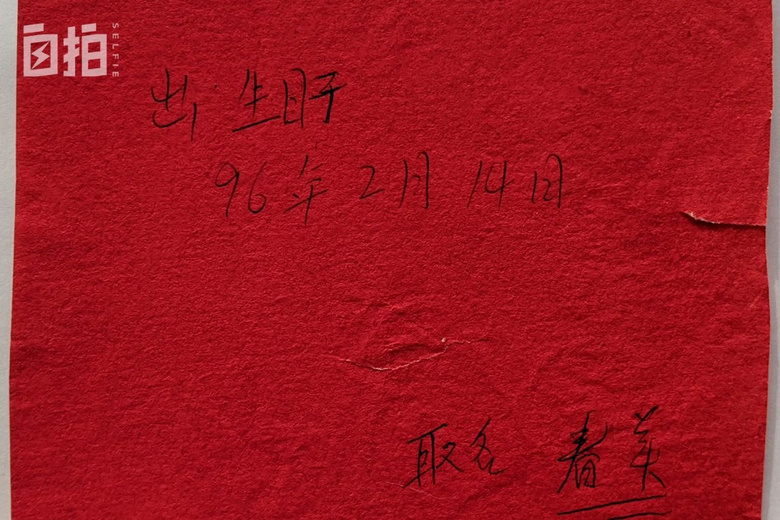 自拍
SELFIE
出生日于
96年2月14日
取名 春英